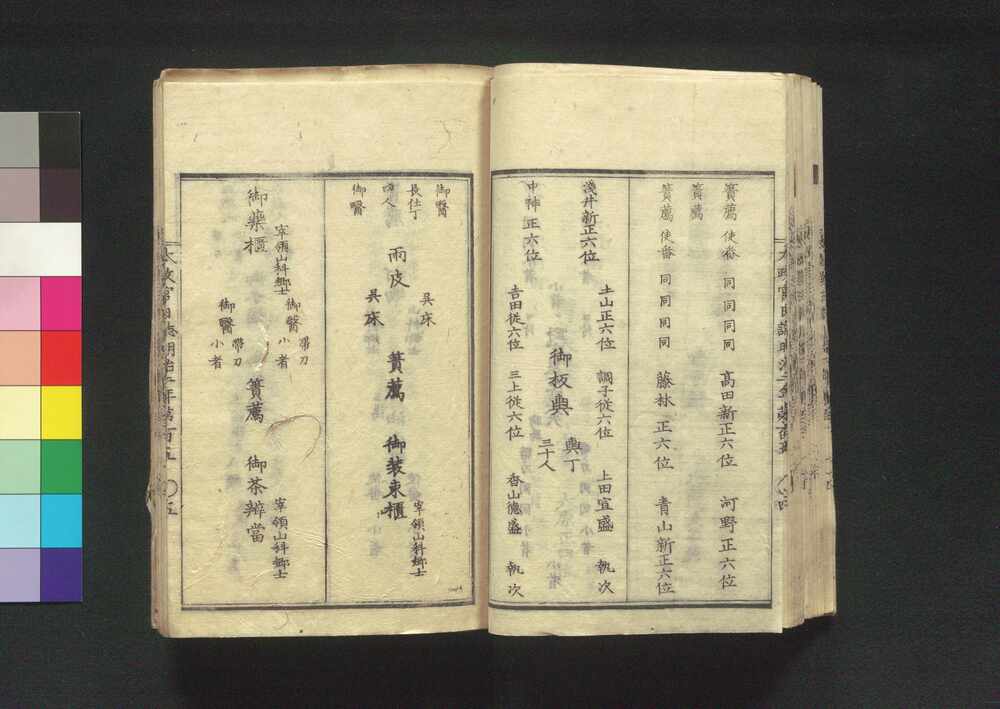 簀薦 使番 同同同同 髙田新正六位 河野正六位
簀薦
簀薦 使番 同同同同 藤林正六位 青山新正六位
土山正六位 調子従六位 上田宜盛 執次
淺井新正六位
御板輿 輿丁三十人
中神正六位
吉田従六位 三上従六位 香山徳盛 執次
御醫
長仕丁
四人
御醫
雨皮
具床
具床
簀薦
御装束櫃
宰領山科郷士
御藥櫃
宰領山科郷士
御醫 小者 帯刀
御醫 小者 帯刀
簀薦
御茶辨當
宰領山科郷士